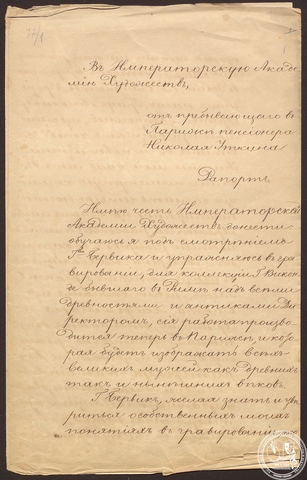 Въ Императорскую Акаде
мію Художествъ,
отъ пребывающаго въ
Парижѣ пенсіонера
Николая Уткина
Рапортъ
Имѣю честь Императорской
Академіи Художествъ донести
обучаюся подъ смотрѣніемъ
Гна Бервика и упражняюсь въ гра
вированіи, для коллекціи Г. Вискон
ти бывшаго въ Римѣ надъ всѣми
древностями и антиками Ди
ректоромъ, сія работа произво
дится теперь въ Парижѣ, и кото
рая будетъ изображать всѣхъ
великихъ мужей какъ древнихъ
такъ и нынѣшнихъ вѣковъ.
Г. Бервикъ, желая знать и увѣ
риться собственныхъ моихъ
понятіяхъ въ гравированіи